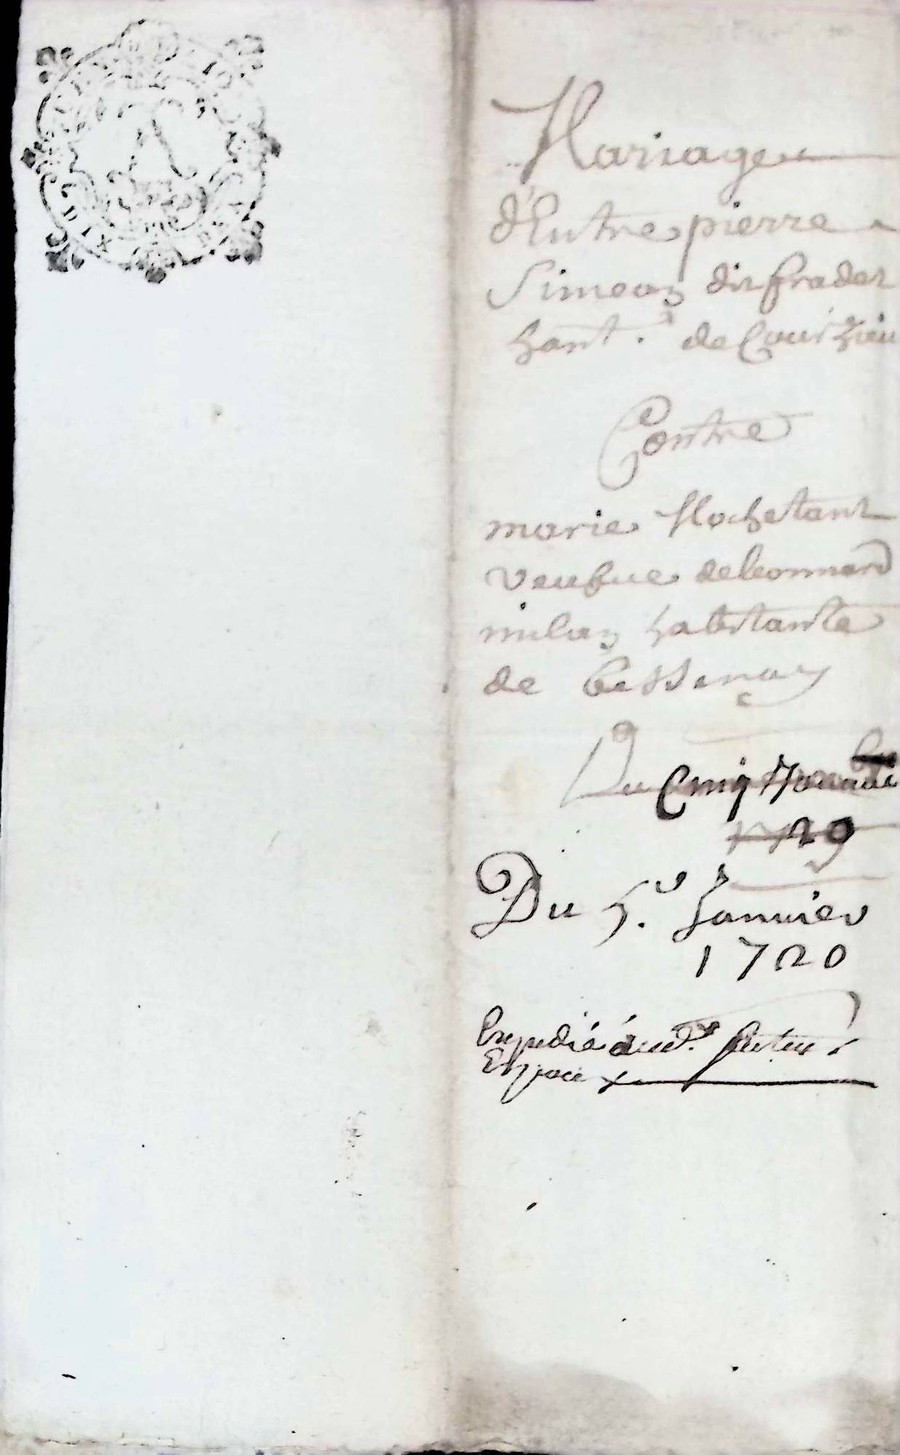 Mariage
d'Entre pierre
Simeon dit frader
hant.^t de Courzieu
Contre
marie Mochetant
veufue de leonnard
milan habitante
de Bessenay
Du Cinq
1720
Du 5.^e Janvier
1720
Expedié aud.^t futeur
Espoux
DIX DEN